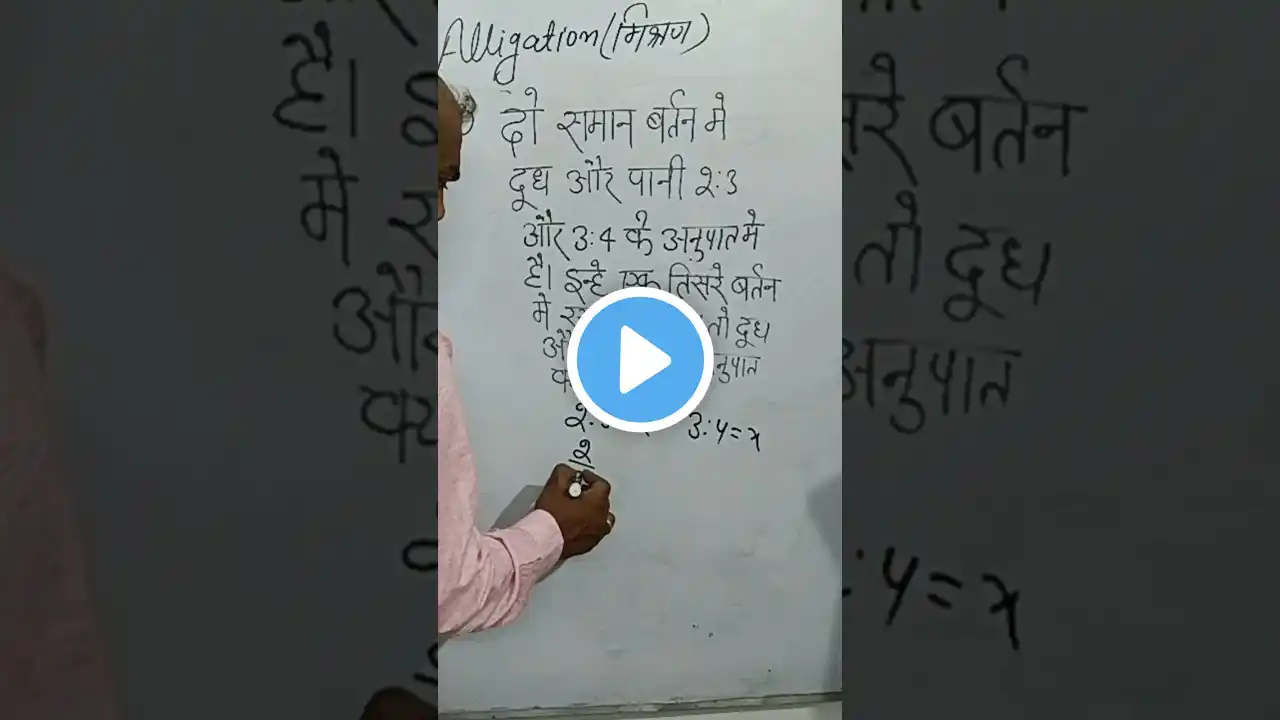 Alligation (मिश्रण)
दो समान बर्तन मे
दूध और पानी २:3
और 3:4 के अनुपात मे
है। इन्हे एक तिसरे बर्तन
मे तो दूध
अनुपात
3:4=x
२